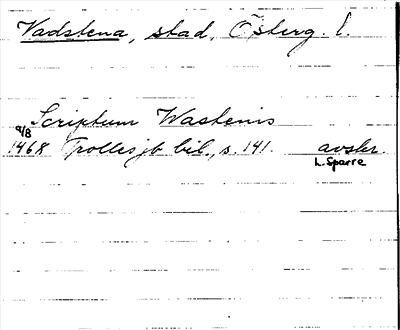 Vadstena, stad, Österg. l.
Scriptum Wastenis
9/8
1468 Trolles jb bil., s. 141. avskr.
L. Sparre